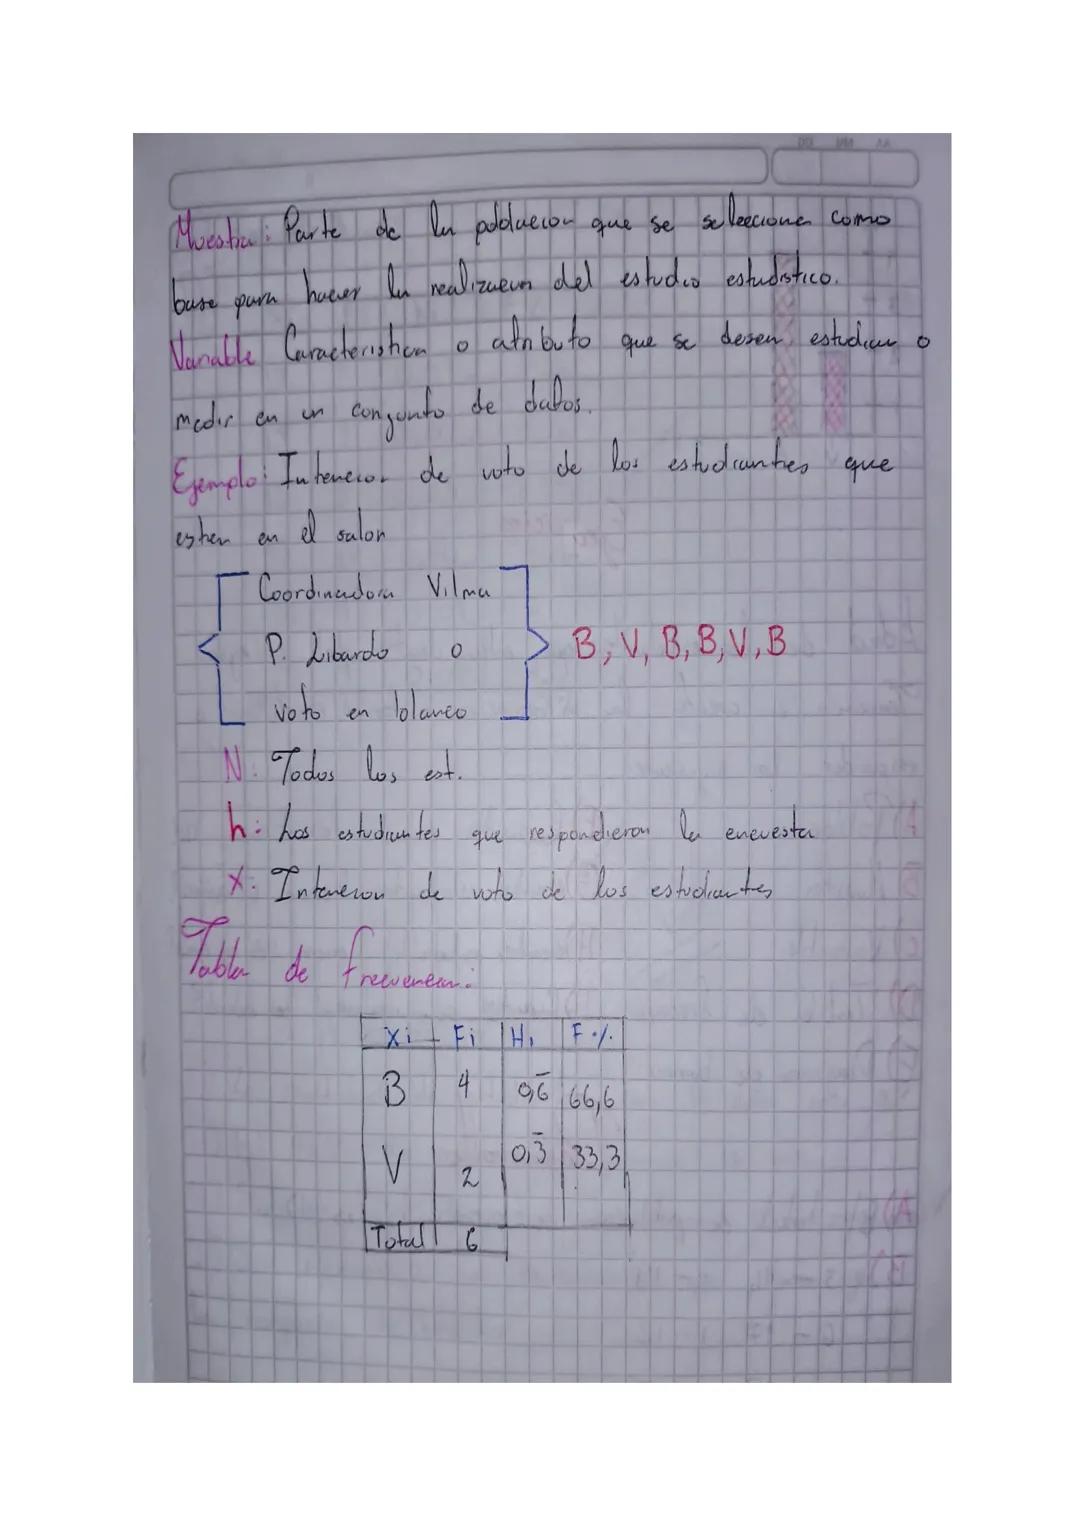 Muestra: Parte de la poblacion que se seleeciona como
base para hacer la realizacion del estudio estadistico.
Variable Caracteristica o atributo que se desea estudiar o
medir en un conjunto de datos.
Ejemplo: Intencion de voto de los estudiantes que
esten en el salon
Coordinadora Vilma
P. Libardo o
voto en blanco
B, V, B, B, V, B
N: Todos los est.
h: Los estudiantes que respondieron la encuesta
X: Intencion de voto de los estudiantes
Tabla de frecuencia:
Xi Fi Hi F%
B 4 0,6̅ 66,6
V 2 0,3̅ 33,3
Total 6